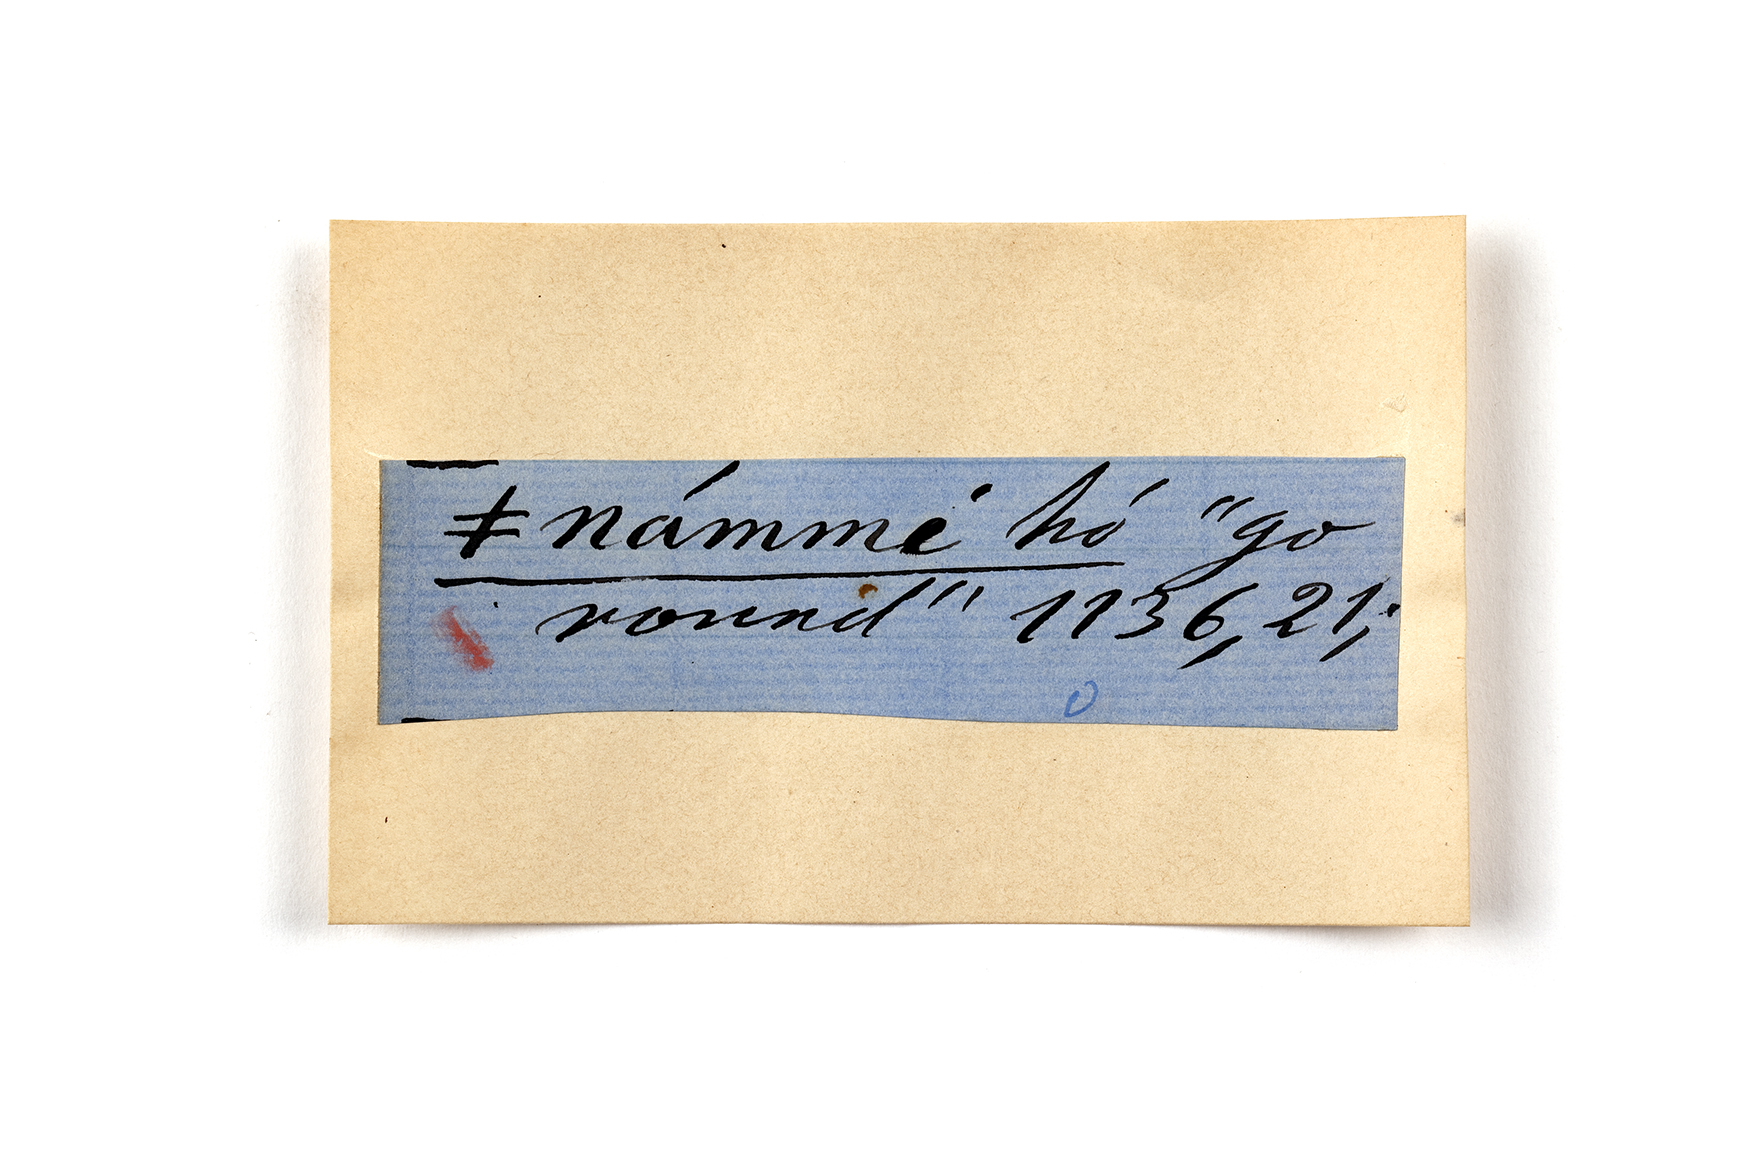 ǂnámmé hó "go
round" 1136,21;